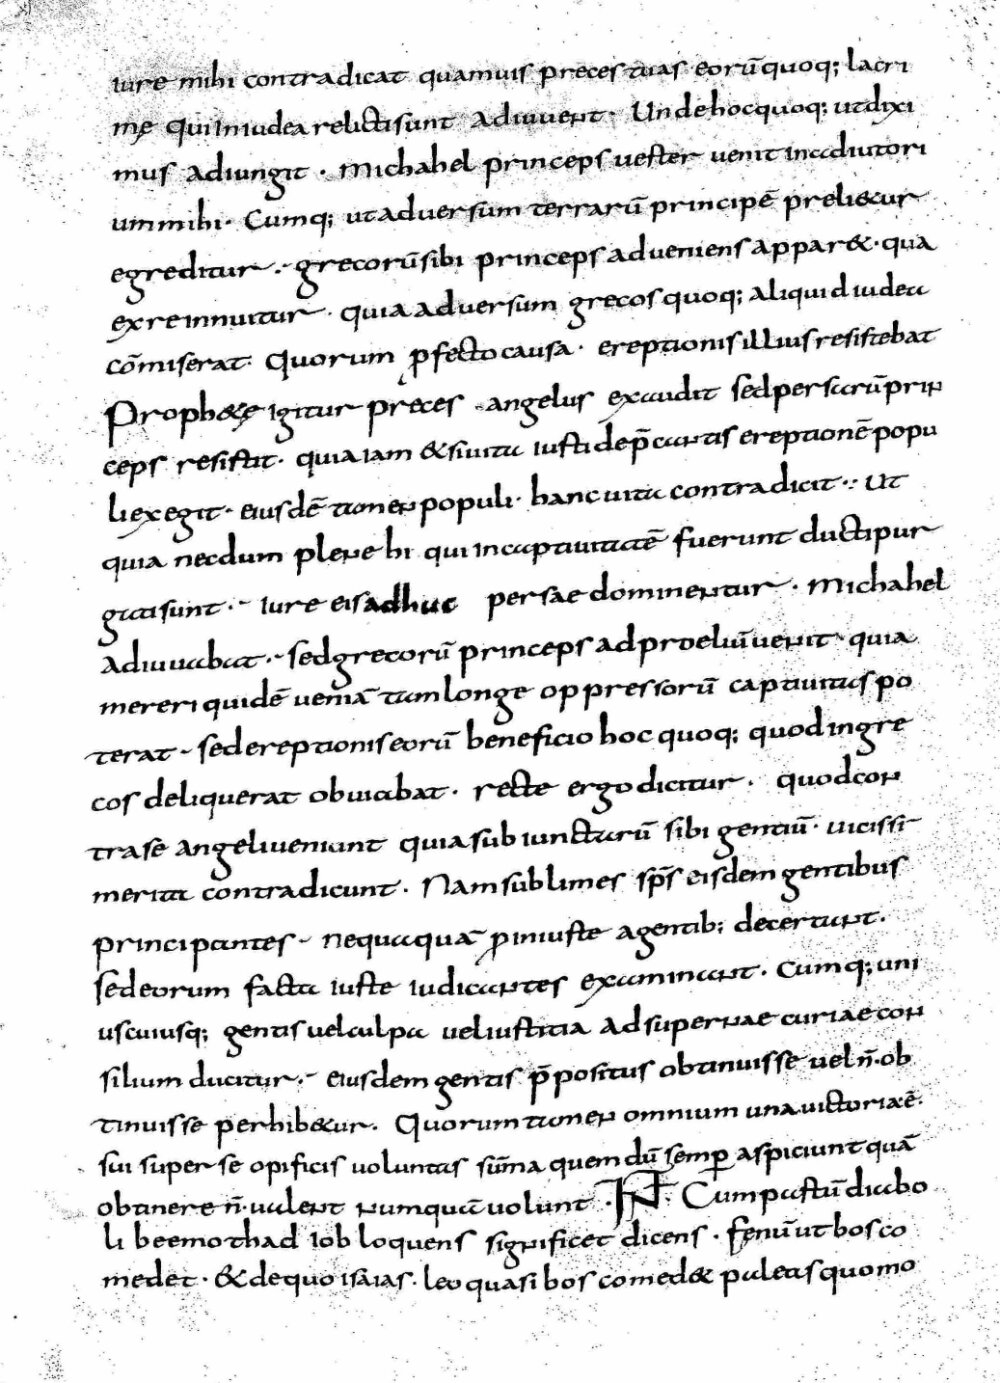 iure mihi contradicat quamuis preces tuas eorū quoq; lacri
mę qui in iudea relicti sunt adiuuent · Unde hoc quoq; ut dixi
mus adiungit · michahel princeps uester uenit in adiutori
um mihi · Cumq; ut aduersum terrarū principē preli&ur
egreditur · grecorū sibi princeps adueniens appar& · qua
ex re innuitur · quia aduersum grecos quoq; aliquid iudea
cōmiserat · Quorum ꝓfecto causa · ereptionis illius resistebat
Proph&ę igitur preces · angelus exaudit sed persarū prin
ceps resistit · quia iam & si uita iusti dep̄cantis ereptionē popu
li exegit · eiusdē tamen populi · hanc uita contradicit · ut
quia necdum plene hi qui in captiuitatē fuerunt ducti pur
gati sunt · iure eis adhuc persae dominentur · michahel
adiuuabat · sed grecorū princeps ad proeliū uenit · quia
mereri quidē ueniā tam longe oppressorū captiuitas po
terat · sed ereptionis eorū beneficio hoc quoq; quod in gre
cos deliquerat obuiabat · recte ergo dicitur · quod con
tra se angeli ueniunt quia subiunctarū sibi gentiū · uicissi
merita contradicunt · Nam sublimes sp̄s eisdem gentibus
principantes · nequaquā ꝓ iniuste agentib; decertant ·
sed eorum facta iuste iudicantes examinant · cumq; uni
uscuiusq; gentis uel culpa uel iustitia ad supernae curiae con
silium ducitur · eiusdem gentis p̄positus obtinuisse uel n̄ · ob
tinuisse perhib&ur · Quorum tamen omnium una uictoria ē ·
sui super se opificis uoluntas sūma quem dū semꝑ aspiciunt quā
obtinere n̄ · ualent numquā uolunt · IN · Cum pastū diabo
li beemoth ad iob loquens significet dicens · fenū ut bos co
medet · & de quo isāias · leo quasi bos comed& paleas quomo